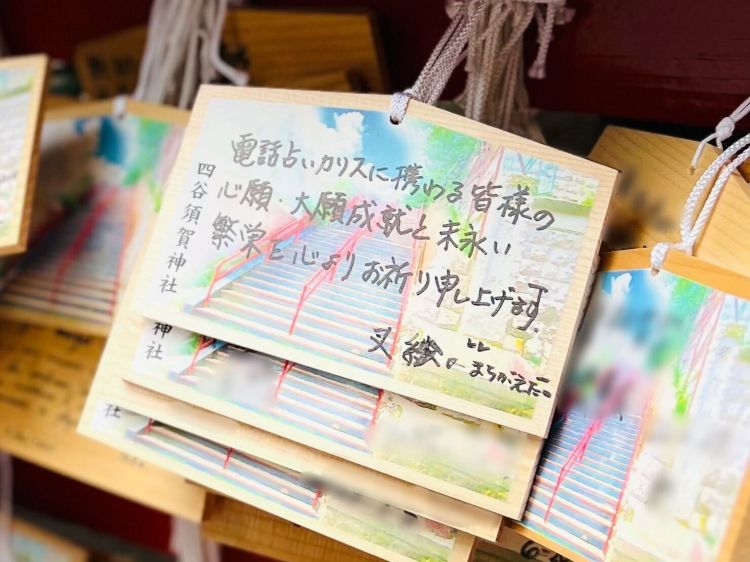 電話占いカリスに携わる皆様の
心願・大願成就と末永い
繁栄を心よりお祈り申し上げます。
四谷須賀神社
神社
社